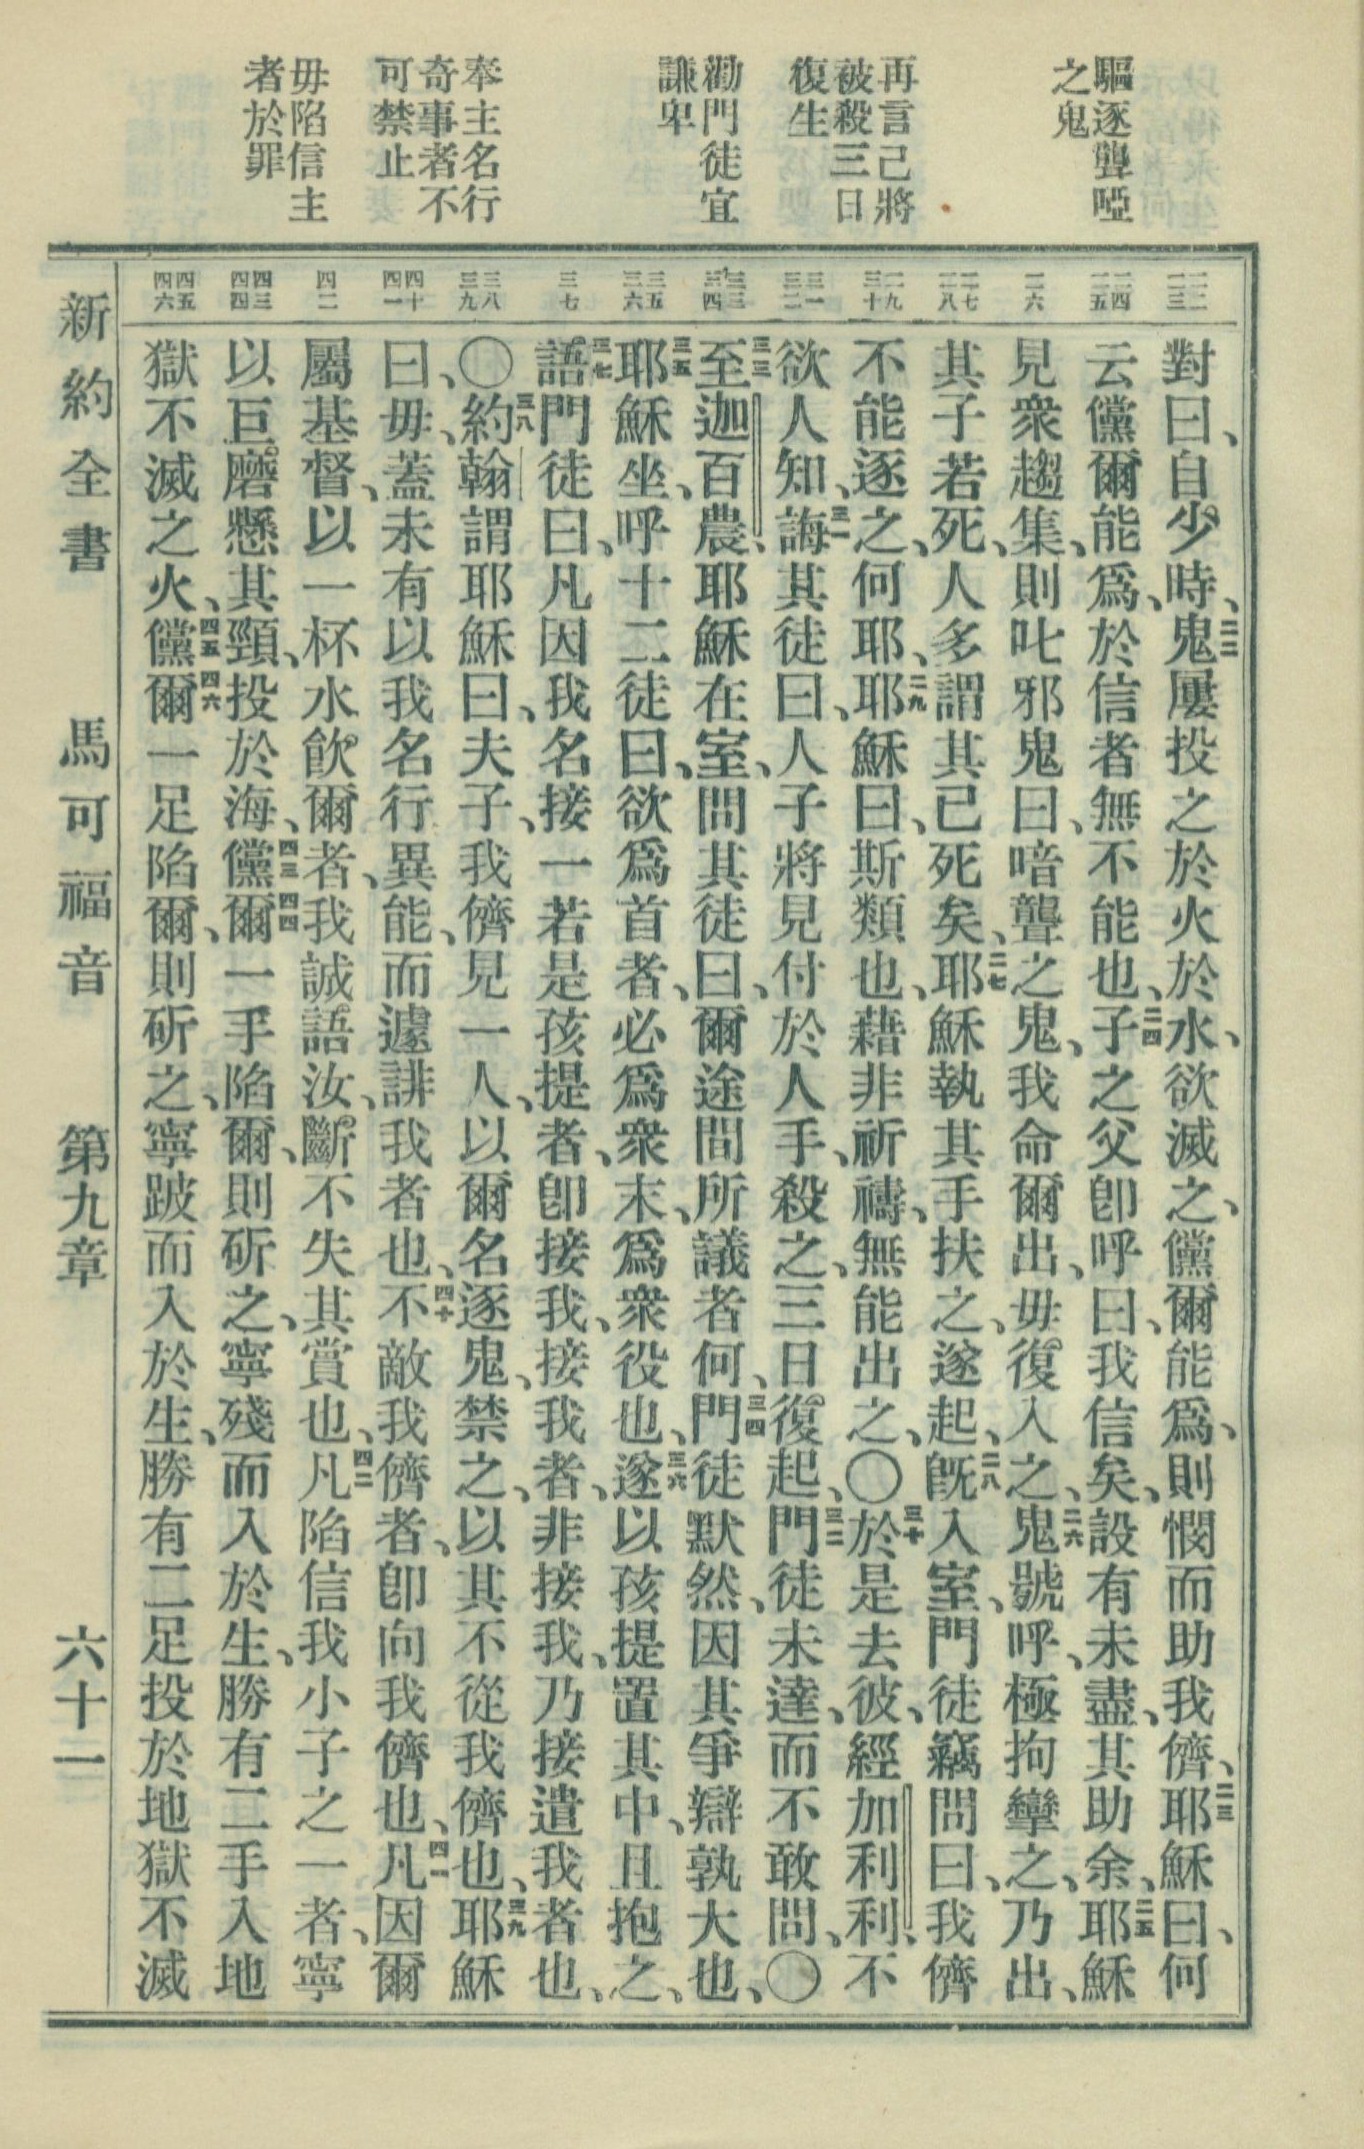 驅逐聾啞
之鬼
再言己將
被殺三日
復生
勸門徒宜
謙卑
奉主名行
奇事者不
可禁止
毋陷信主
者於罪
二二 二三
二四 二五
二六
二七 二八
二九 三十
三一 三二
三三 三四
三五 三六
三七
三八 三九
四十 四一
四二
四三 四四
四五 四六
對曰、自少時、二二鬼屢投之於火於水、欲滅之、儻爾能爲、則憫而助我儕、二三耶穌曰、何
云儻爾能爲、於信者無不能也、二四子之父卽呼曰、我信矣、設有未盡、其助余、二五耶穌
見衆趨集、則叱邪鬼曰、喑聾之鬼、我命爾出、毋復入之、二六鬼號呼、極拘攣之、乃出、
其子若死、人多謂其已死矣、二七耶穌執其手扶之、遂起、二八旣入室、門徒竊問曰、我儕
不能逐之、何耶、二九耶穌曰、斯類也、藉非祈禱、無能出之、〇三十於是去彼、經加利利、不
欲人知、三一誨其徒曰、人子將見付於人手、殺之、三日復起、三二門徒未達、而不敢問、〇
三三至迦百農、耶穌在室、問其徒曰、爾途間所議者何、三四門徒默然、因其爭辯孰大也、
三五耶穌坐、呼十二徒曰、欲爲首者、必爲衆末、爲衆役也、三六遂以孩提置其中、且抱之、
三七語門徒曰、凡因我名接一若是孩提者、卽接我、接我者、非接我、乃接遣我者也、
〇三八約翰謂耶穌曰、夫子、我儕見一人、以爾名逐鬼、禁之、以其不從我儕也、三九耶穌
曰、毋、蓋未有以我名行異能、而遽誹我者也、四十不敵我儕者、卽向我儕也、四一凡因爾
屬基督、以一杯水飮爾者、我誠語汝、斷不失其賞也、四二凡陷信我小子之一者、寧
以巨磨懸其頸、投於海、四三四四儻爾一手陷爾、則斫之、寧殘而入於生、勝有二手入地
獄不滅之火、四五四六儻爾一足陷爾、則斫之、寧跛而入於生、勝有二足投於地獄不滅
新約全書 馬可福音 第九章 六十一